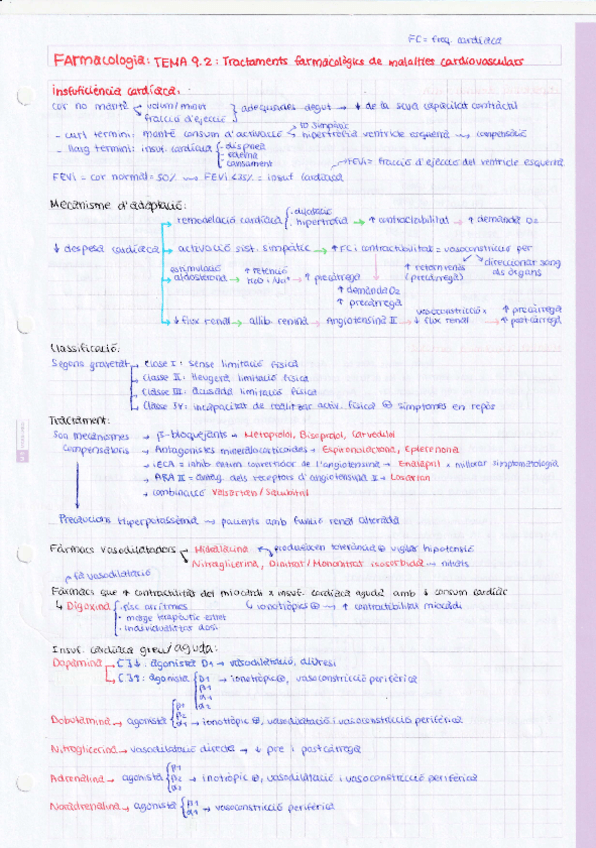 FC = freq. cardíaca
Farmacologia: TEMA 9.2: Tractaments farmacològics de malalties cardiovasculars
Insuficiència cardíaca:
cor no manté volum/minut
fracció d'ejecció
adequades degut → ↓ de la seva capacitat contràctil
- curt termini: manté consum d'activació
SO simpàtic
hipertròfia ventricle esquerra → compensació
- llarg termini: insuf. cardíaca
- dispnea
- edema
- cansament
FEVi = fracció d'ejecció del ventricle esquerra
FEVi = cor normal = 50% → FEVi <35% = insuf cardíaca
Mecanisme d'adaptació:
↓ despesa cardíaca
remodelació cardíaca
- dilatació
- hipertròfia → ↑ contractibilitat → ↑ demanda O2
activació sist. simpàtic → ↑ FC i contractibilitat = vasoconstricció per
↑ retorn venós (precàrrega)
direccionar sang als òrgans
estimulació aldosterona → ↑ retenció H2O i Na+ → ↑ precàrrega
↑ demanda O2
↑ precàrrega
↓ flux renal → allib. renina → Angiotensina II → vasoconstricció x ↓ flux renal → ↑ precàrrega ↑ postcàrrega
Classificació:
Segons gravetat → Classe I: sense limitació física
Classe II: lleugera limitació física
Classe III: acusada limitació física
Classe IV: incapacitat de realitzar activ. física ⊕ símptomes en repòs
Tractament:
Són mecanismes compensatoris
→ β-bloquejants → Metoprolol, Bisoprolol, Carvedilol
→ Antagonistes mineralocorticoides → Espironolactona, Eplerenona
→ iECA = inhib enzim convertidor de l'angiotensina → Enalapril x millorar simptomatologia
→ ARA II = antag. dels receptors d'angiotensina II → Losartan
→ combinació Valsartan/Sacubitril
Precaucions Hiperpotassèmia → pacients amb funció renal alterada
Fàrmacs vasodilatadors → Hidralazina → produeixen tolerància ⊕ vigilar hipotensió
Nitroglicerina, Dinitrat/Mononitrat isosorbida → nitrats
fa vasodilatació
Fàrmacs que ↑ contractilitat del miocardi x insuf. cardíaca aguda amb ↓ consum cardíac
↳ Digoxina
- risc arítmies
- marge terapèutic estret
- individualitzar dosi
↳ ionotròpics ⊕ → ↑ contractibilitat miocardi
Insuf. cardíaca greu/aguda:
Dopamina → C3↓: agonista D1 → vasodilatació, diüresi
→ C3↑: agonista D1 β1 α1 α2 → ionotròpic ⊕, vasoconstricció perifèrica
Dobutamina → agonista β1 β2 α1 → ionotròpic ⊕, vasodilatació i vasoconstricció perifèrica
Nitroglicerina → vasodilatació directa → ↓ pre i postcàrrega
Adrenalina → agonista β1 β2 α1 → inotròpic ⊕, vasodilatació i vasoconstricció perifèrica
Noradrenalina → agonista β1 α1 → vasoconstricció perifèrica